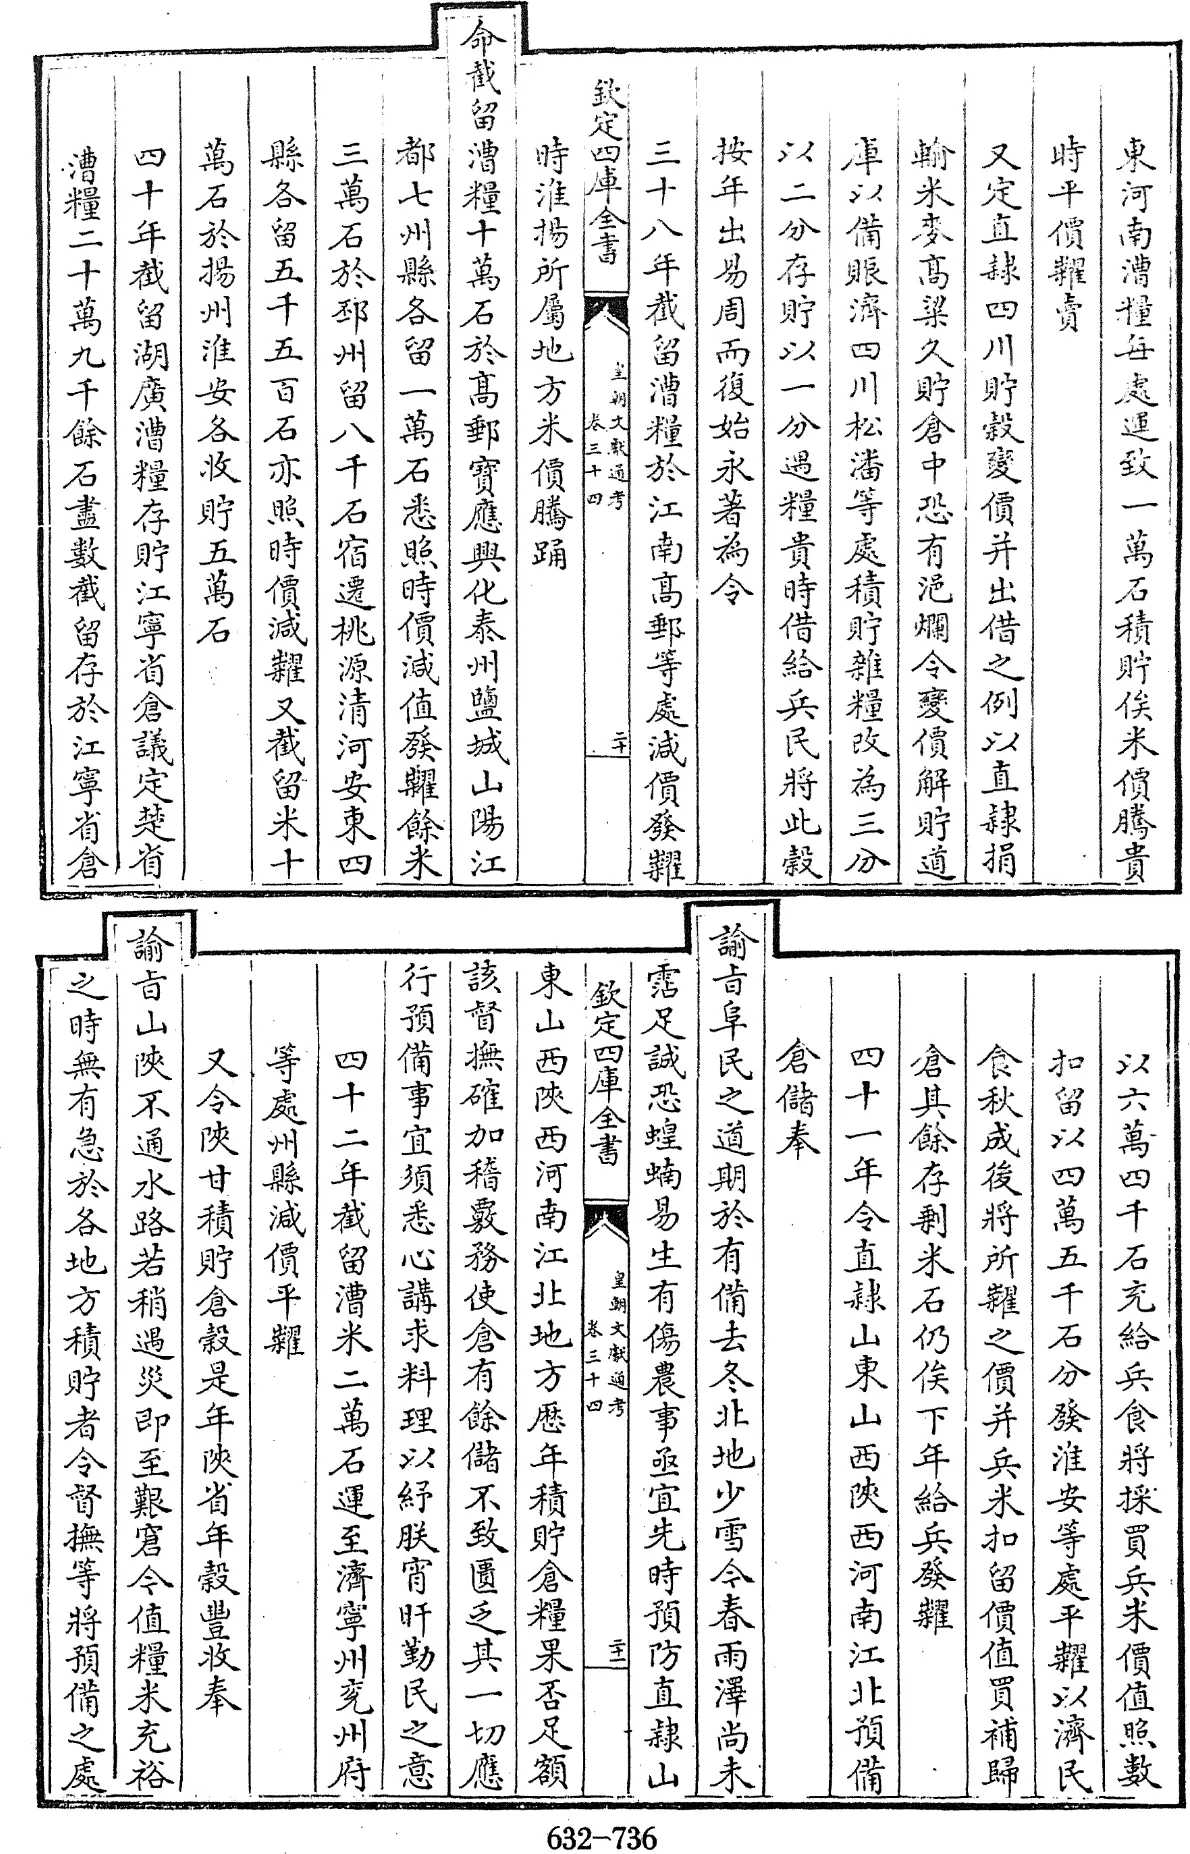 東河南漕糧每處運致一萬石積貯俟米價騰貴
時平價糶賣
又定直隸四川貯穀變價并出借之例以直隸捐
輸米麥高粱久貯倉中恐有浥爛令變價解貯道
庫以備賑濟四川松潘等處積貯雜糧改為三分
以二分存貯以一分遇糧貴時借給兵民將此穀
按年出易周而復始永著為令
三十八年截留漕糧於江南高郵等處減價發糶
欽定四庫全書
皇朝文獻通考
卷三十四
二十
時淮揚所屬地方米價騰踊
命截留漕糧十萬石於髙郵寶應興化泰州鹽城山陽江
都七州縣各留一萬石悉照時價減值發糶餘米
三萬石於邳州留八千石宿遷桃源清河安東四
縣各留五千五百石亦照時價減糶又截留米十
萬石於揚州淮安各收貯五萬石
四十年截留湖廣漕糧存貯江寧省倉議定楚省
漕糧二十萬九千餘石盡數截留存於江寧省倉
以六萬四千石充給兵食將採買兵米價值照數
扣留以四萬五千石分發淮安等處平糶以濟民
食秋成後將所糶之價并兵米扣留價值買補歸
倉其餘存剩米石仍俟下年給兵發糶
四十一年令直隸山東山西陝西河南江北預備
倉儲奉
諭旨阜民之道期於有備去冬北地少雪今春雨澤尚未
霑足誠恐蝗蝻易生有傷農事亟宜先時預防直隸山
欽定四庫全書
皇朝文獻通考
卷三十四
二十一
東山西陝西河南江北地方歷年積貯倉糧果否足額
該督撫確加稽覈務使倉有餘儲不致匱乏其一切應
行預備事宜須悉心講求料理以紓朕宵旰勤民之意
四十二年截留漕米二萬石運至濟寧州兗州府
等處州縣減價平糶
又令陝甘積貯倉穀是年陝省年穀豐收奉
諭旨山陝不通水路若稍遇災即至艱窘今值糧米充裕
之時無有急於各地方積貯者令督撫等將預備之處
632-736